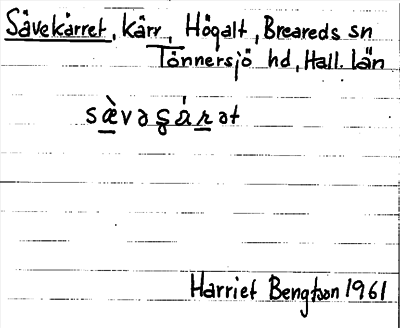 Sävekärret, kärr, Högalt, Breareds sn
Tönnersjö hd, Hall. län
Harriet Bengtson 1961